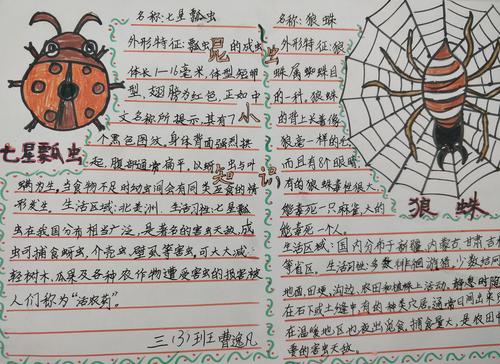 名称:七星瓢虫
外形特征:瓢虫的成虫
体长1-16毫米,体型短卵
型,翅膀为红色,正如中
文名称所提示,其有7个
个黑色图纹,身体背面强烈拱
起,腹部通常扁平,以蚜虫与叶
螨为生,当食物不足时幼虫间会有同类互食的情
形发生。生活区域:北美洲.生活习性:七星瓢
虫在我国分布相当广泛,是著名的害虫天敌,成
虫可捕食蚜虫、介壳虫、壁虱等害虫,可大大减
轻树木、瓜果及各种农作物遭受害虫的损害被
人们称为“活农药”。
三(3)班曹逸凡
七星瓢虫
昆虫小知识
名称:狼蛛
外形特征:狼
蛛属蜘蛛目
的一科,狼蛛
的背上长着像
狼毫一样的毛
而且有8个眼睛
有的狼蛛毒性很大,
能毒死一只麻雀,大的
能毒死一个人。
生活区域:国内分布于新疆、内蒙古、甘肃、吉林
等省区。生活习性:多数徘徊游猎,少数结网
地面,田埂,沟边,农田和植株上活动,静息时隐
在石下或土缝中,有的种类穴居,通常日间出来
在温暖地区也夜出觅食,捕食量大,是农田中
重的害虫天敌。
狼蛛